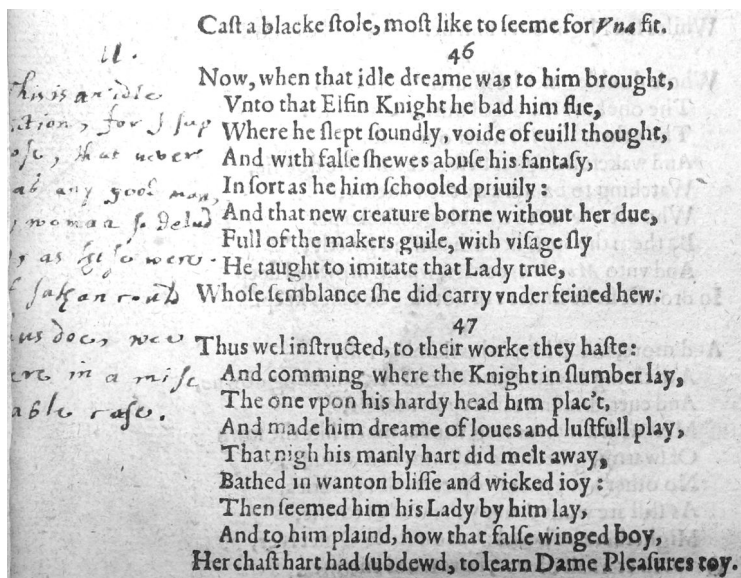 Caſt a blacke ſtole, moſt like to ſeeme for Vna fit.
46
Now, when that idle dreame was to him brought,
Vnto that Elfin Knight he bad him flie,
Where he ſlept ſoundly, voide of euill thought,
And with falſe ſhewes abuſe his fantaſy,
In ſort as he him ſchooled priuily:
And that new creature borne without her due,
Full of the makers guile, with viſage ſly
He taught to imitate that Lady true,
Whoſe ſemblance ſhe did carry vnder feined hew.
47
Thus wel inſtructed, to their worke they haſte:
And comming where the Knight in ſlumber lay,
The one vpon his hardy head him plac't,
And made him dreame of loues and luſtfull play,
That nigh his manly hart did melt away,
Bathed in wanton bliſſe and wicked ioy:
Then ſeemed him his Lady by him lay,
And to him plaind, how that falſe winged boy,
Her chaſt hart had ſubdewd, to learn Dame Pleaſures toy.
this is an idle
iction, for I sup
ose, that never
any good man,
woman so delud
as were
satan
us doe, wee
ere in a mise
able case.